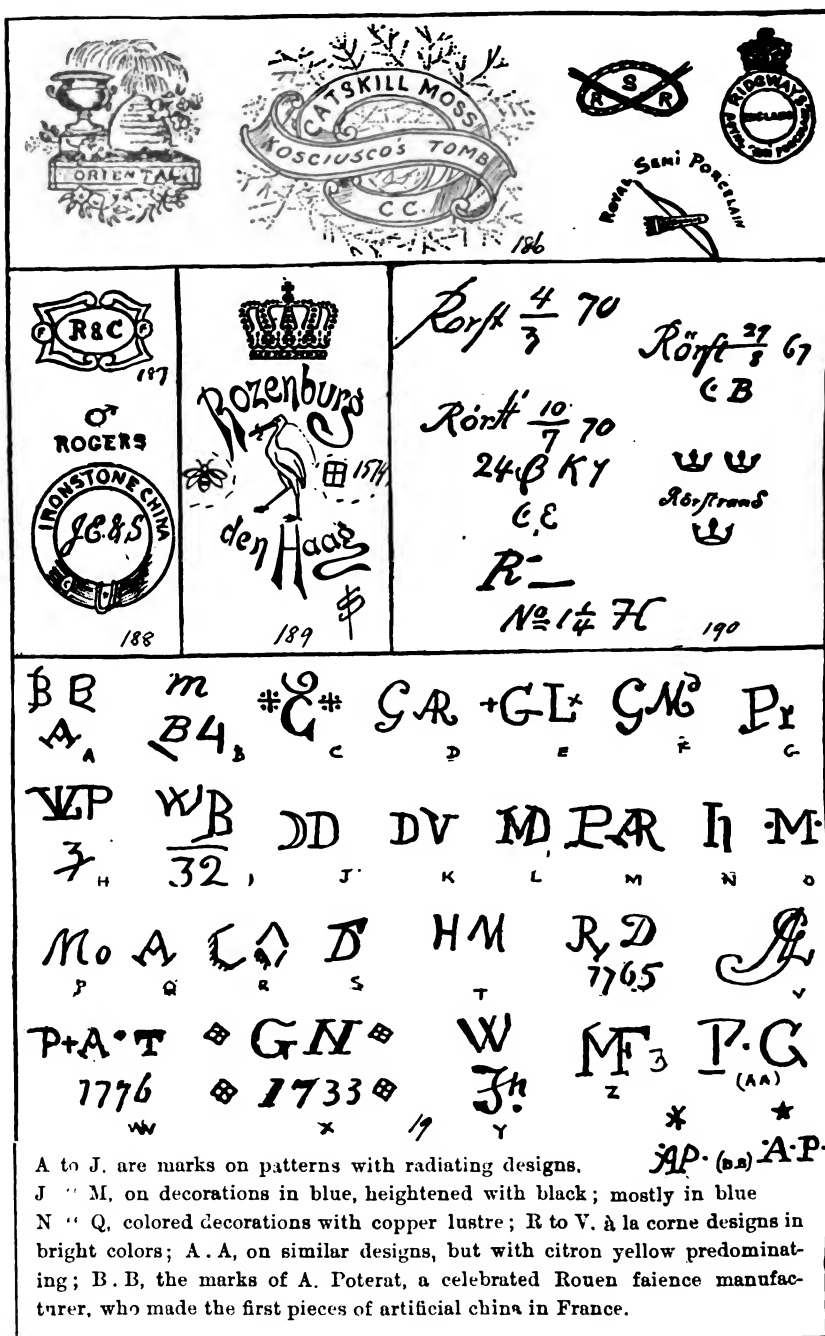 ORIENTAL
CATSKILL MOSS
KOSCIUSCO'S TOMB
C C.
186
R S R
RIDGWAYS
ENGLAND
ROYAL SEMI PORCELAIN
R & C
187
ROGERS
IRONSTONE CHINA
J.E.&S
188
Rozenburg
den Haag
189
Rorst 4/3 70
Rörst 29/8 67
C B
Rörst 10/7 70
24 β K Y
C, E
R
No 1 1/4 H
Rörstrand
190
B B
A
A
m
B 4
B
C
C
G AR
D
+GL+
E
GM
F
Pr
G
VLP
3
H
W B
32
I
DD
J
D V
K
MD
L
PAR
M
N
·M·
O
Mo
P
A
Q
R
S
H M
T
R D
1765
V
P+A·T
1776
W
GN
1733
X
W
Y
19
MF 3
Z
P·G
(AA)
AP· (B.B) ·A·P·
A to J. are marks on patterns with radiating designs.
J " M, on decorations in blue, heightened with black; mostly in blue
N " Q, colored decorations with copper lustre; R to V. à la corne designs in
bright colors; A. A, on similar designs, but with citron yellow predominat-
ing; B. B, the marks of A. Poterat, a celebrated Rouen faience manufac-
turer, who made the first pieces of artificial china in France.